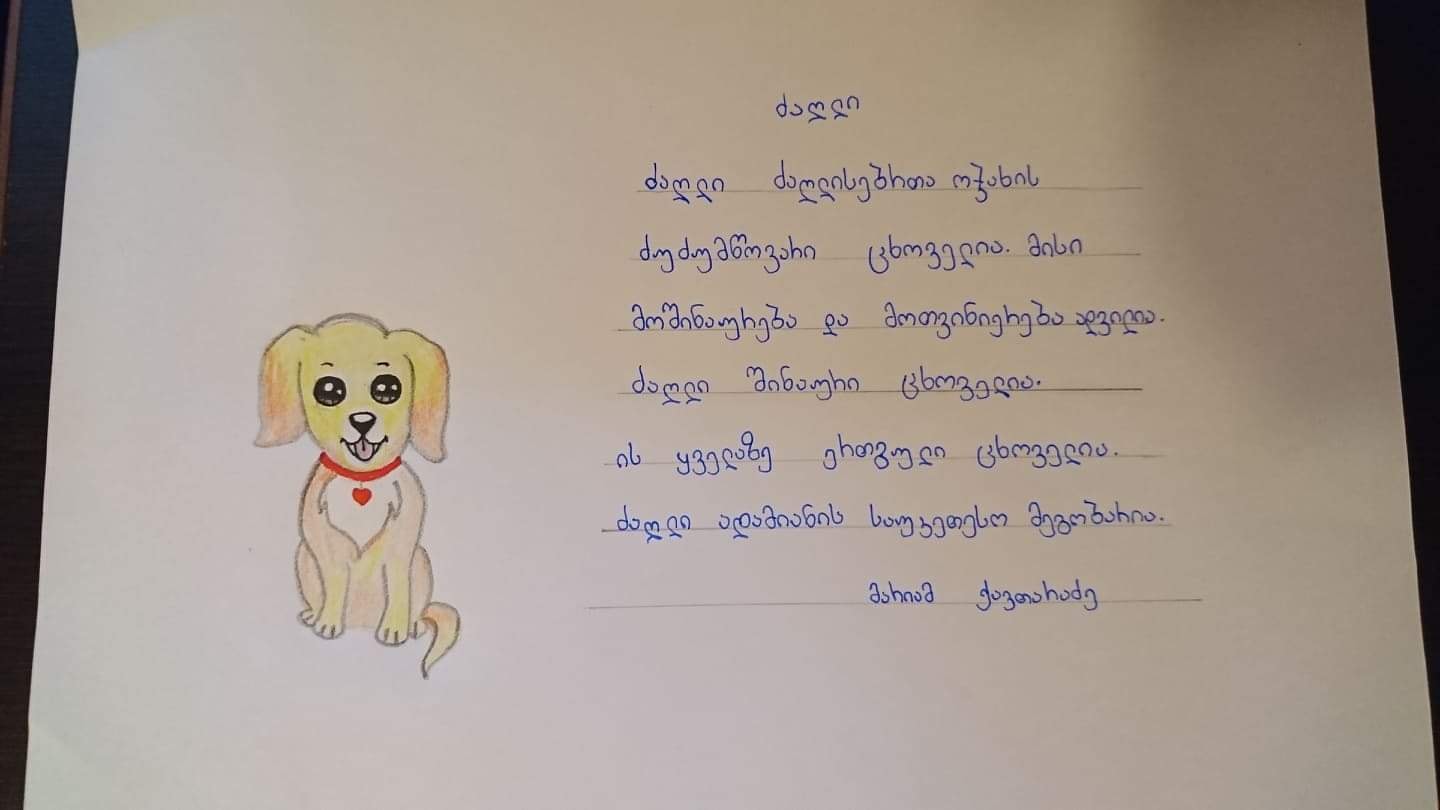 ძაღლი
ძაღლი ძაღლისებრთა ოჯახის
ძუძუმწოვარი ცხოველია. მისი
მოშინაურება და მოთვინიერება ადვილია.
ძაღლი შინაური ცხოველია.
ის ყველაზე ერთგული ცხოველია.
ძაღლი ადამიანის საუკეთესო მეგობარია.
მარიამ ქავთარაძე